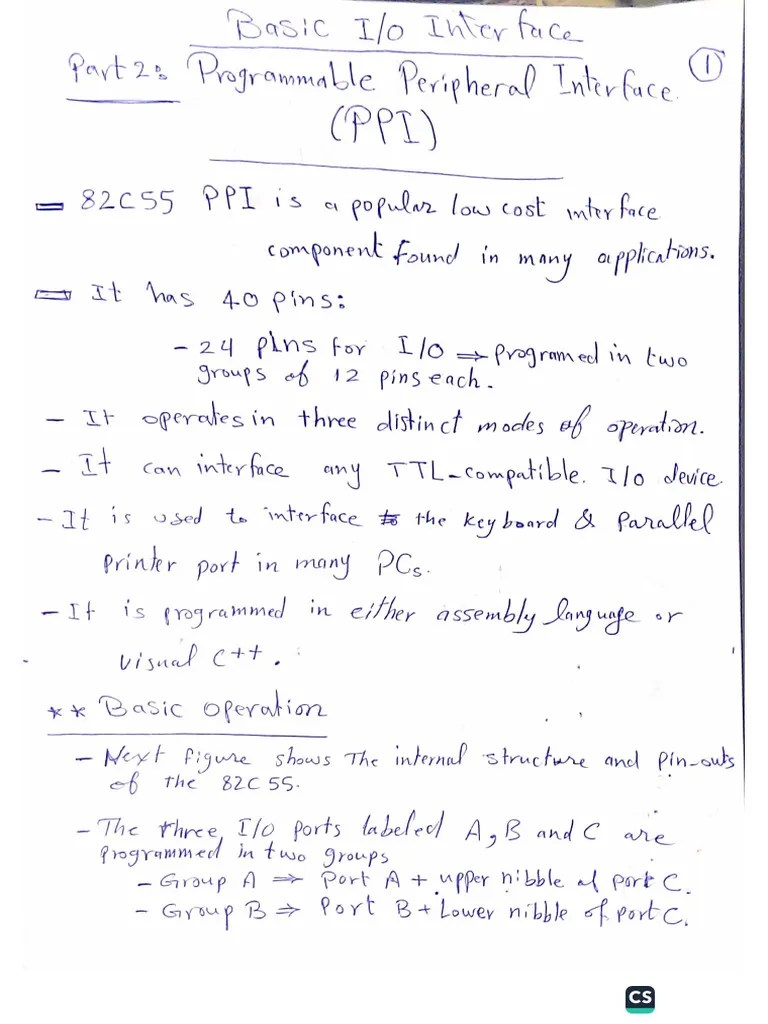 Basic I/o Interface
Part 2: Programmable Peripheral Interface
①
(PPI)
= 82C55 PPI is a popular low cost interface
component found in many applications.
= It has 40 pins:
- 24 pins for I/O ⇒ programed in two
groups of 12 pins each.
- It operates in three distinct modes of operation.
- It can interface any TTL-compatible. I/o device
- It is used to interface to the keyboard & parallel
printer port in many PCs.
- It is programmed in either assembly language or
visual c++.
** Basic operation
- Next figure shows The internal structure and pin-outs
of the 82C55.
- The three, I/o ports labeled A, B and C are
programmed in two groups
- Group A ⇒ Port A + upper nibble of port C.
- Group B ⇒ Port B + Lower nibble of port C.
CS